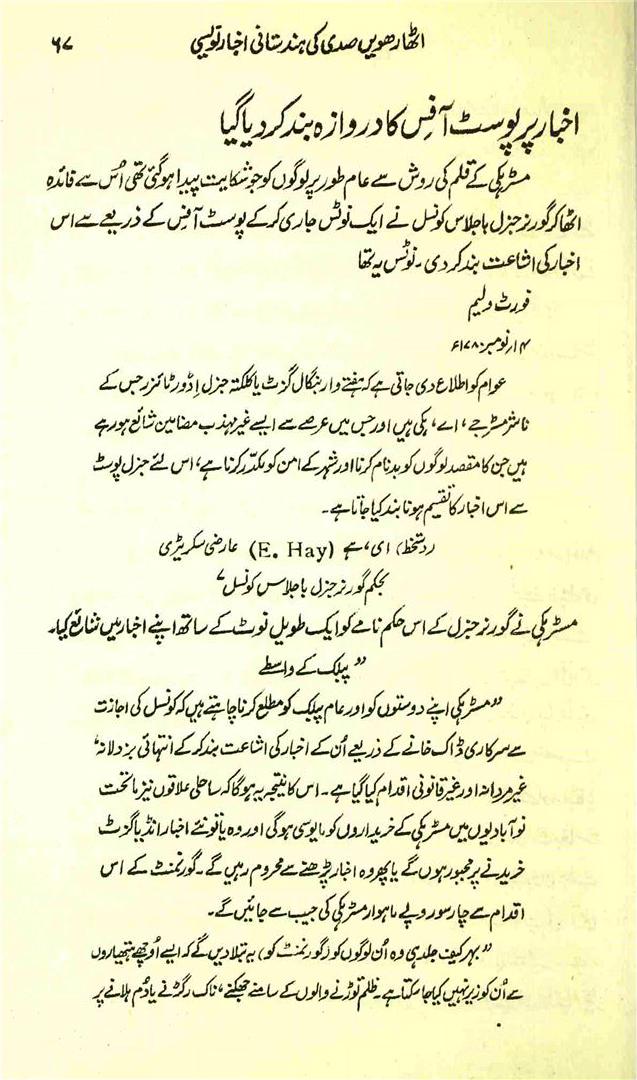 اٹھارھویں صدی کی ہندستانی اخبار نویسی ۶۷
اخبار پر پوسٹ آفِس کا دروازہ بند کر دیا گیا
مسٹر ہکی کے قلم کی روش سے عام طور پر لوگوں کو جو شکایت پیدا ہو گئی تھی اُس سے فائدہ
اٹھا کر گورنر جنرل باجلاس کونسل نے ایک نوٹس جاری کر کے پوسٹ آفس کے ذریعے سے اس
اخبار کی اشاعت بند کر دی۔ نوٹس یہ تھا
فورٹ ولیم
۱۴ر نومبر ۱۷۸۰ء
عوام کو اطلاع دی جاتی ہے کہ ہفتے وار بنگال گزٹ یا کلکتہ جنرل اِڈورٹائزر جس کے
ناشر مسٹر جے، اے، ہکی ہیں اور جس میں عرصے سے ایسے غیر مہذب مضامین شائع ہو رہے
ہیں جن کا مقصد لوگوں کو بدنام کرنا اور شہر کے امن کو مکدّر کرنا ہے، اس لئے جنرل پوسٹ
سے اس اخبار کا تقسیم ہونا بند کیا جاتا ہے۔
(دستخط) ای، ہے (E. Hay) عارضی سکریٹری
بحکم گورنر جنرل باجلاس کونسل ۷
مسٹر ہکی نے گورنر جنرل کے اس حکم نامے کو ایک طویل نوٹ کے ساتھ اپنے اخبار میں شائع کیا۔
”پبلک کے واسطے
”مسٹر ہکی اپنے دوستوں کو اور عام پبلک کو مطلع کرنا چاہتے ہیں کہ کونسل کی اجازت
سے سرکاری ڈاک خانے کے ذریعے اُن کے اخبار کی اشاعت بند کر کے انتہائی بزدلانہ،
غیر مردانہ اور غیر قانونی اقدام کیا گیا ہے۔ اس کا نتیجہ یہ ہوگا کہ ساحلی علاقوں نیز ماتحت
نو آبادیوں میں مسٹر ہکی کے خریداروں کو مایوسی ہوگی اور وہ یا تو نئے اخبار انڈیا گزٹ
خریدنے پر مجبور ہوں گے یا پھر وہ اخبار پڑھنے سے محروم رہیں گے۔ گورنمنٹ کے اس
اقدام سے چار سو روپے ماہوار مسٹر ہکی کی جیب سے جائیں گے۔
”بہر کیف جلد ہی وہ اُن لوگوں کو (گورنمنٹ کو) یہ بتلا دیں گے کہ ایسے اوچھے ہتھیاروں
سے اُن کو زیر نہیں کیا جا سکتا ہے۔ ظلم توڑنے والوں کے سامنے جھکنے، ناک رگڑنے یا دُم ہلانے پر